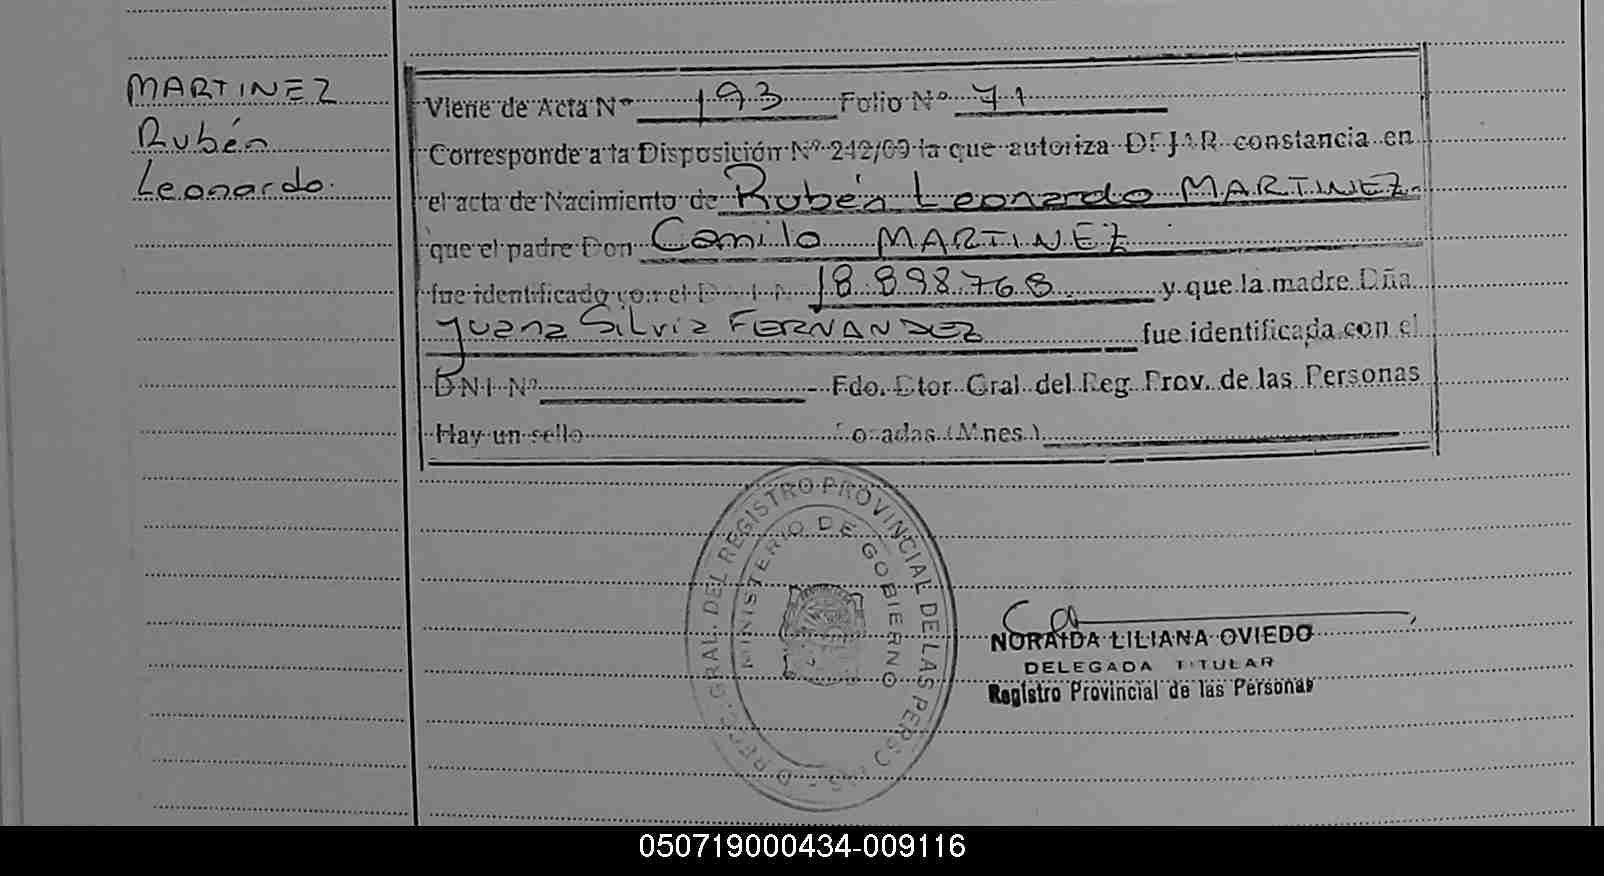 MARTINEZ
Rubén
Leonardo.
Viene de Acta Nº 193 Folio Nº 71
Corresponde a la Disposición Nº 242/09 la que autoriza DEJAR constancia en
el acta de Nacimiento de Rubén Leonardo MARTINEZ.
que el padre Don Camilo MARTINEZ
fue identificado con el D.N.I. Nº 18.898.768 y que la madre Dña
Juana Silvia FERNANDEZ fue identificada con el
DNI Nº - Fdo. Dtor. Gral. del Reg. Prov. de las Personas
Hay un sello (Mnes.)
GRAL. DEL REGISTRO PROVINCIAL DE LAS PERSONAS
MINISTERIO DE GOBIERNO
NORAIDA LILIANA OVIEDO
DELEGADA TITULAR
Registro Provincial de las Personas
050719000434-009116